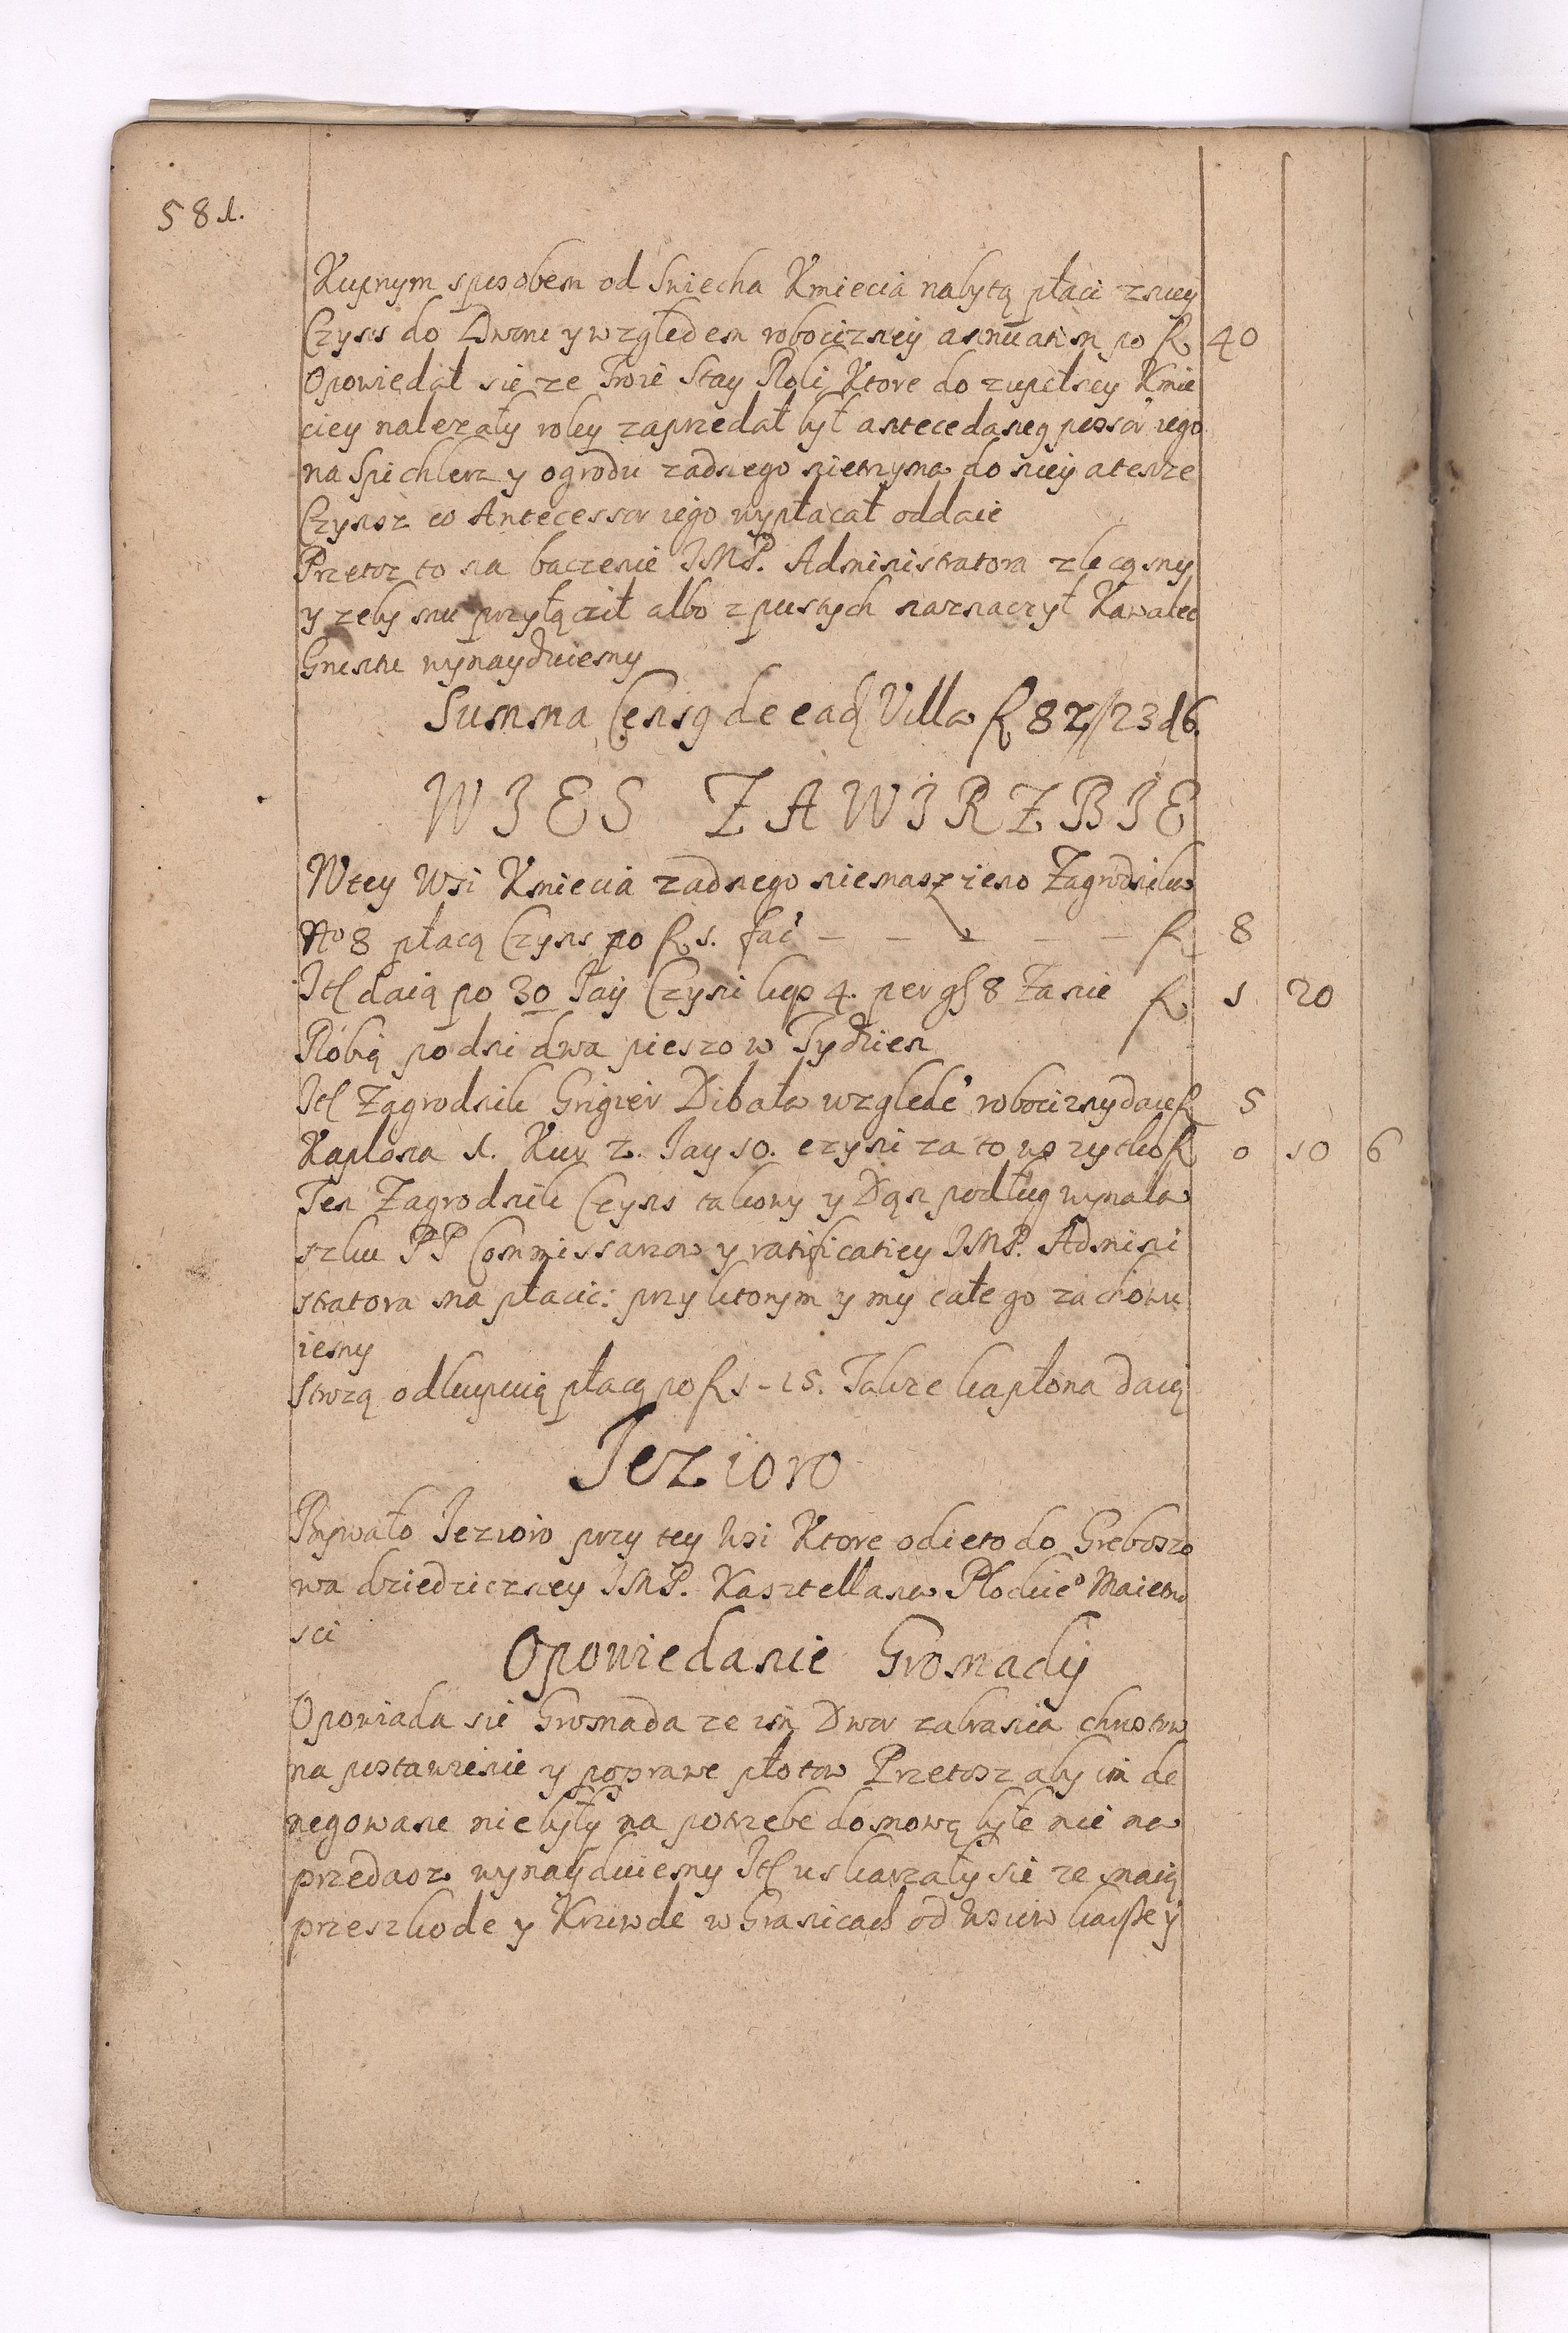 581.
Kupnym sposobem od Smiecha Kmiecia nabytą płaci zniey
Czyns do Dworu y względem robocizney annuatim po fl 40
Opowiedał sie ze Troie Stay Roli Ktore do zupełney Kmie
ciey nalezały roley zaprzedał był antecedaneq possor iego
na Spichlerz y ogrodu zadnego nietrzyma do niey a tenze
Czynsz co Antecessor iego wypłacał oddaie
Przetoz to na baczenie JMP. Administratora zlecamy
y zeby mu przyłącził albo z pustych naznaczył Kawalec
Gruntu wynayduiemy
Summa Censq de ead Villa fl 82//23 d 6.
WIES ZAWIRZBIE
W tey Wsi Kmiecia zadnego niemasz ieno Zagrodnikow
No 8 płacą Czyns po fl 1. fac̃ – – – – – fl 8
Itl daią po 30 Jay Czyni kop 4. per gl 8 Zanie fl 1 20
Robią po dni dwa pieszo w Tydzien
Itl Zagrodnik Grigier Dibała wzglede robocizny daie fl 5
Kapłona 1. Kur 2. Jay 10. czyni za to wszytko fl 0 10 6
Ten Zagrodnik Czyns takowy y Dan podług wynala
szku PP Commissarzow y ratificatiey JMP. Admini
stratora ma płacic: przy ktorym y my całe go zachowu
iemy
Strozą odkupuią płacą po fl 1–15. Takze kapłona daią
Jezioro
Bywało Jezioro przy tey Wsi Ktore odieto do Greboszo
wa dziedziczney JMP. Kasztellana Płockieo Maietno
sci
Opowiedanie Gromady
Opowiada sie Gromada ze im Dwor zabrania chrostu
na postawienie y poprawe płotow Przetosz aby im de
negowane niebyły na potrzebe domową byłe nie na
przedasz wynayduiemy Itl uskarzały sie ze maią
przeszkode y Krzywde w Granicach od Wsiow